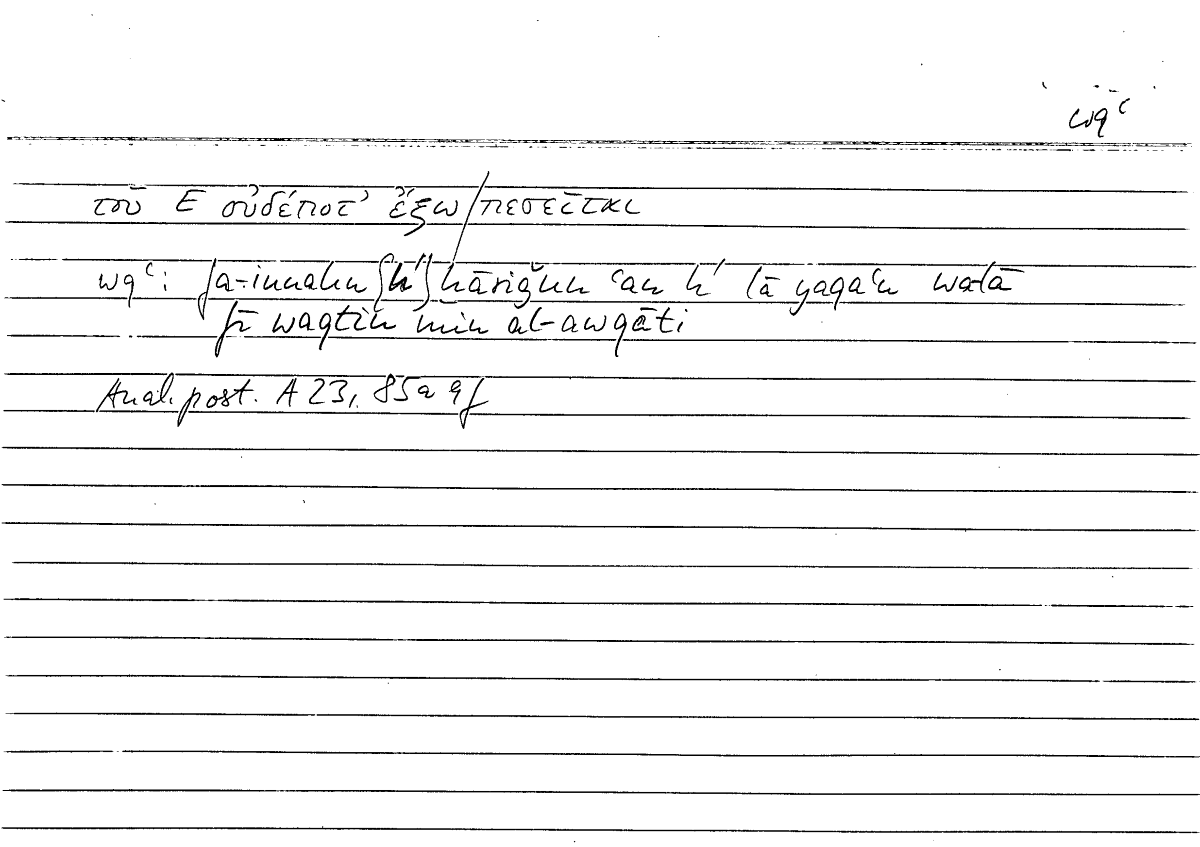 wqʿ
τοῦ Ε οὐδέποτ’ ἔξω/πεσεῖται
wqʿ: fa-innahu {h'} ḫāriǧun ʿan h' lā yaqaʿu walā
fī waqtin min al-awqāti
Anal. post. A 23, 85a 9f